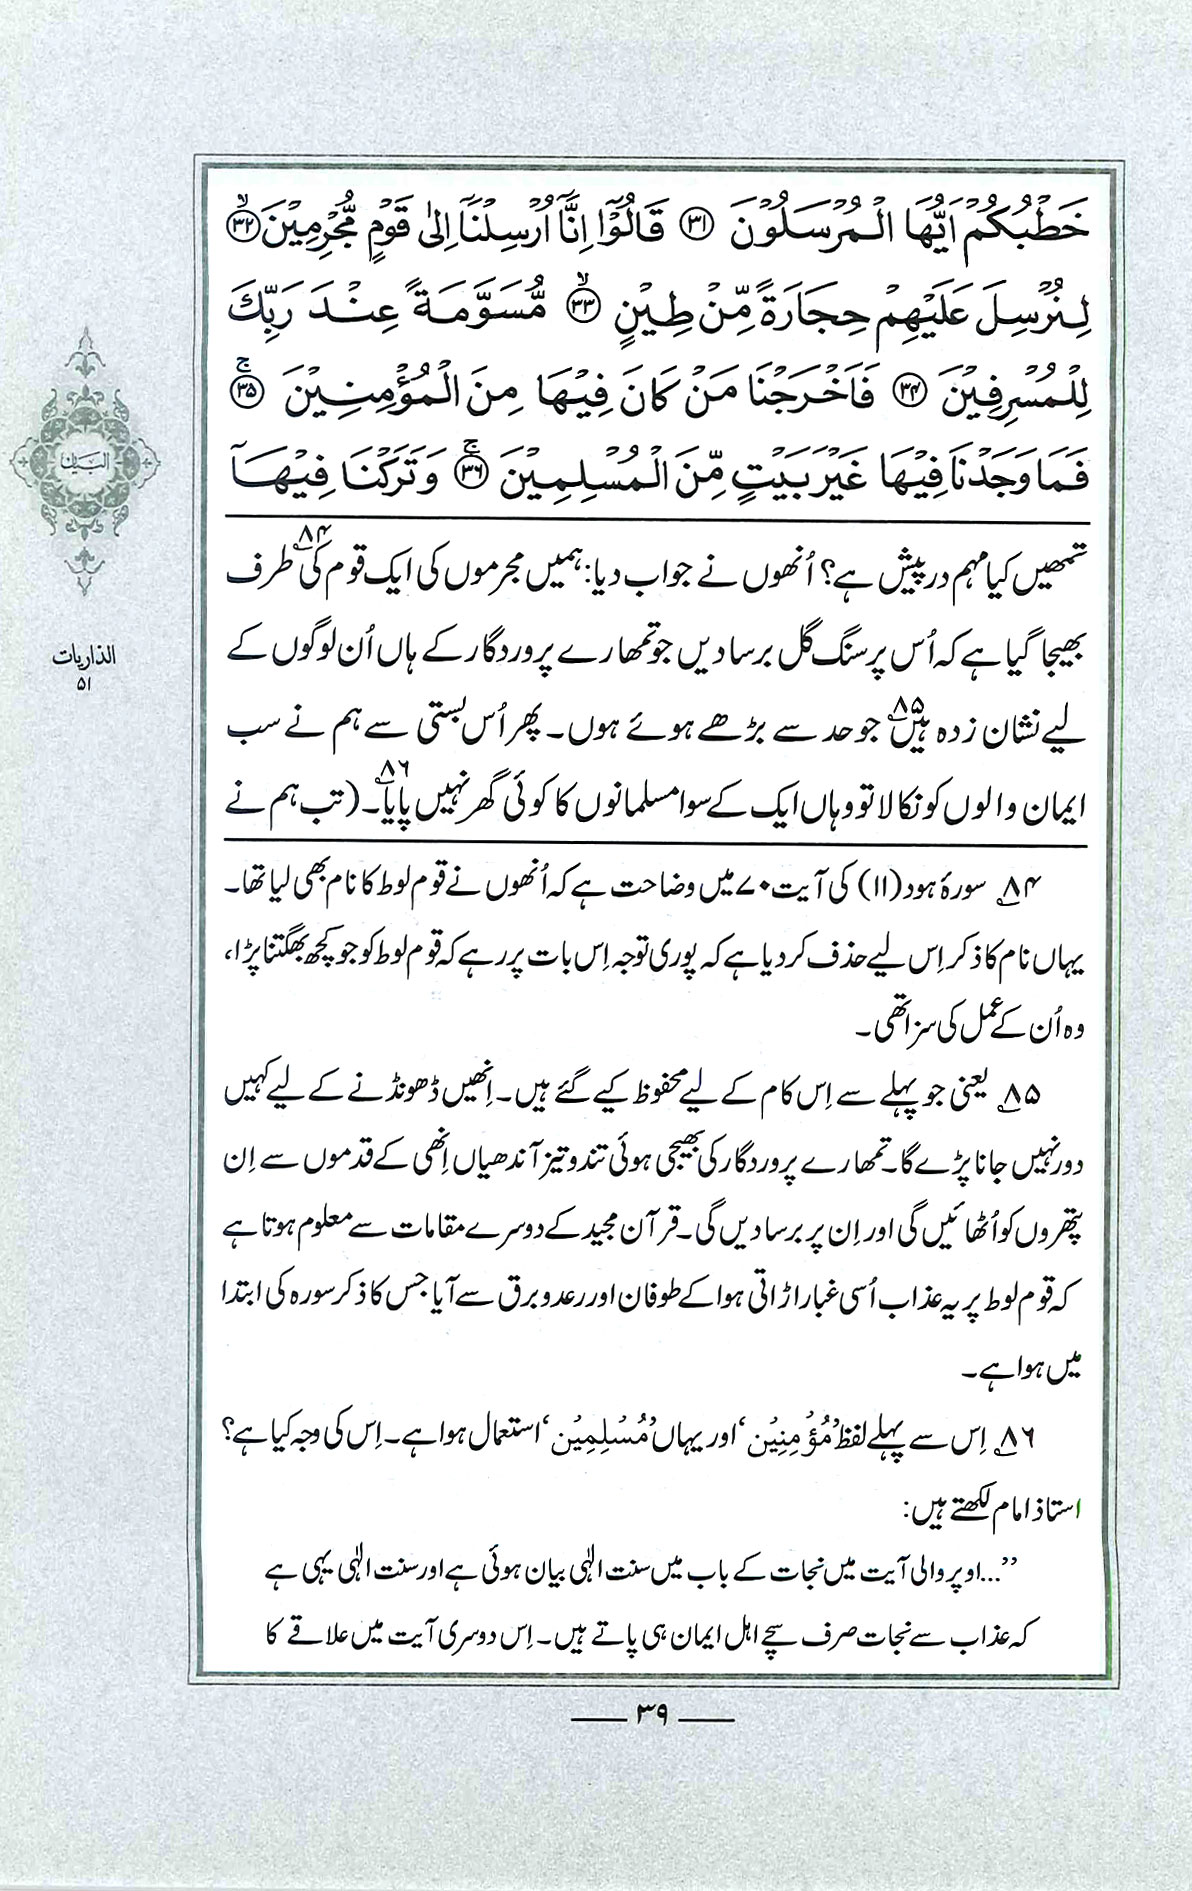 خَطْبُكُمْ اَيُّهَا الْمُرْسَلُوْنَ ﴿۳۱﴾ قَالُوْٓا اِنَّآ اُرْسِلْنَآ اِلٰى قَوْمٍ مُّجْرِمِيْنَ ﴿۳۲﴾ۙ
لِنُرْسِلَ عَلَيْهِمْ حِجَارَةً مِّنْ طِيْنٍ ﴿۳۳﴾ۙ مُّسَوَّمَةً عِنْدَ رَبِّكَ
لِلْمُسْرِفِيْنَ ﴿۳۴﴾ فَاَخْرَجْنَا مَنْ كَانَ فِيْهَا مِنَ الْمُؤْمِنِيْنَ ﴿۳۵﴾ۚ
فَمَا وَجَدْنَا فِيْهَا غَيْرَ بَيْتٍ مِّنَ الْمُسْلِمِيْنَ ﴿۳۶﴾ۚ وَتَرَكْنَا فِيْهَآ
تمھیں کیا مہم درپیش ہے؟ اُنھوں نے جواب دیا: ہمیں مجرموں کی ایک قوم کی۸۴ طرف
بھیجا گیا ہے کہ اُس پر سنگ گل برسا دیں جو تمھارے پروردگار کے ہاں اُن لوگوں کے
لیے نشان زدہ ہیں۸۵ جو حد سے بڑھے ہوئے ہوں۔ پھر اُس بستی سے ہم نے سب
ایمان والوں کو نکالا تو وہاں ایک کے سوا مسلمانوں کا کوئی گھر نہیں پایا۸۶۔ (تب ہم نے
۸۴ سورۂ ہود (۱۱) کی آیت ۷۰ میں وضاحت ہے کہ اُنھوں نے قوم لوط کا نام بھی لیا تھا۔
یہاں نام کا ذکر اِس لیے حذف کر دیا ہے کہ پوری توجہ اِس بات پر رہے کہ قوم لوط کو جو کچھ بھگتنا پڑا،
وہ اُن کے عمل کی سزا تھی۔
۸۵ یعنی جو پہلے سے اِس کام کے لیے محفوظ کیے گئے ہیں۔ اِنھیں ڈھونڈنے کے لیے کہیں
دور نہیں جانا پڑے گا۔ تمھارے پروردگار کی بھیجی ہوئی تند و تیز آندھیاں اِنھی کے قدموں سے اِن
پتھروں کو اُٹھائیں گی اور اِن پر برسا دیں گی۔ قرآن مجید کے دوسرے مقامات سے معلوم ہوتا ہے
کہ قوم لوط پر یہ عذاب اُسی غبار اڑاتی ہوا کے طوفان اور رعد و برق سے آیا جس کا ذکر سورہ کی ابتدا
میں ہوا ہے۔
۸۶ اِس سے پہلے لفظ ’مُؤْمِنِيْن‘ اور یہاں ’مُسْلِمِيْن‘ استعمال ہوا ہے۔ اِس کی وجہ کیا ہے؟
استاذ امام لکھتے ہیں:
’’...اوپر والی آیت میں نجات کے باب میں سنت الٰہی بیان ہوئی ہے اور سنت الٰہی یہی ہے
کہ عذاب سے نجات صرف سچے اہل ایمان ہی پاتے ہیں۔ اِس دوسری آیت میں علاقے کا
البیان
الذاریات
۵۱
۳۹